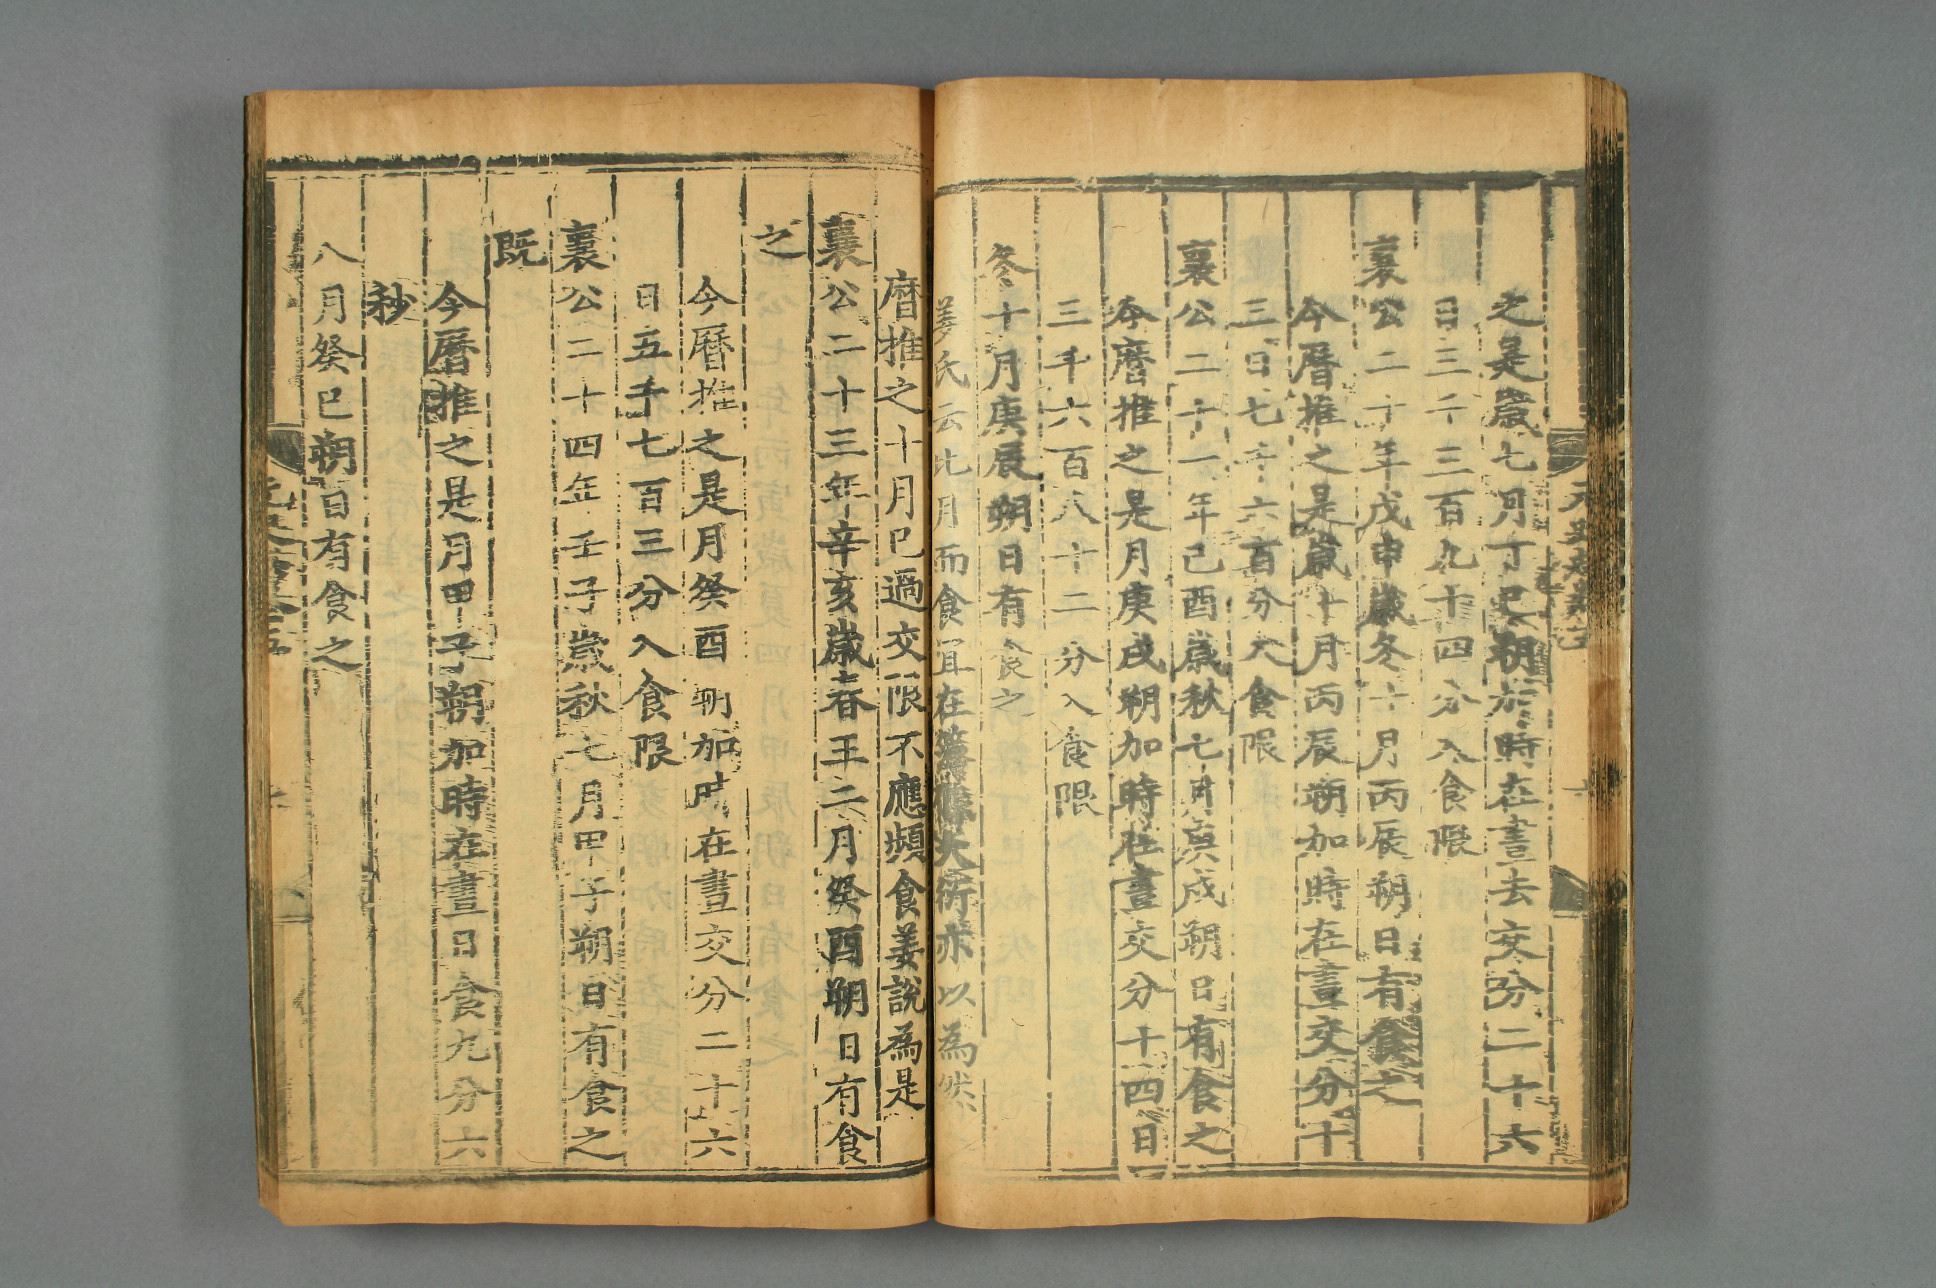 之是歲七月丁巳朔加時在晝去交分二十六
日三千三百九十四分入食限
襄公二十年戊申歲冬十月丙辰朔日有食之
今曆推之是歲十月丙辰朔加時在晝交分十
三日七千六百分入食限
襄公二十一年己酉歲秋七月庚戌朔日有食之
今曆推之是月庚戌朔加時在晝交分十四日
三千六百八十二分入食限
冬十月庚辰朔日有食之
姜氏云比月而食宜在誤條大衍亦以為然
曆推之十月已過交限不應頻食姜說為是
襄公二十三年辛亥歲春王二月癸酉朔日有食
之
今曆推之是月癸酉朔加時在晝交分二十六
日五千七百三分入食限
襄公二十四年壬子歲秋七月甲子朔日有食之
既
今曆推之是月甲子朔加時在晝日食九分六
秒
八月癸巳朔日有食之